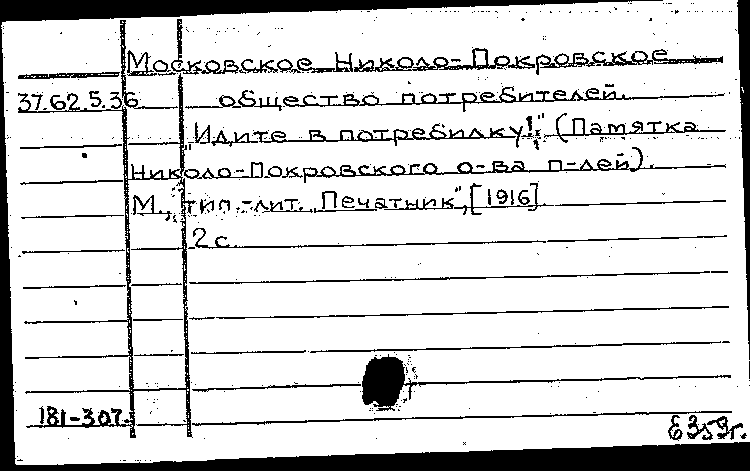 Московское Николо-Покровское
37.62.5.36 общество потребителей.
„Идите в потребилку!" (Памятка
Николо-Покровского о-ва п-лей).
М., тип.-лит. „Печатник", [1916].
2 с.
181-307.
Е359г.